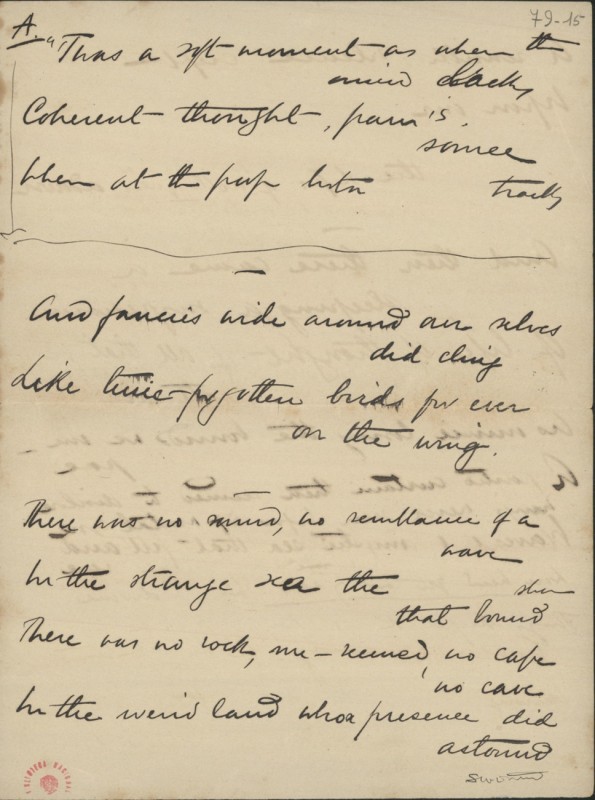 79-15
A.
"'Twas a soft moment as when the
mind lacks
Coherent thought, pain's
source
When at the poop
tracks
And fancies wide around our selves
did cling
Like time-forgotten birds for ever
on the wing.
There was no sound, no semblance of a
wave
In the strange sea the shore
that bound
There was no rock, me-seemed, no cape
no cave
In the weird land whose presence did
astound